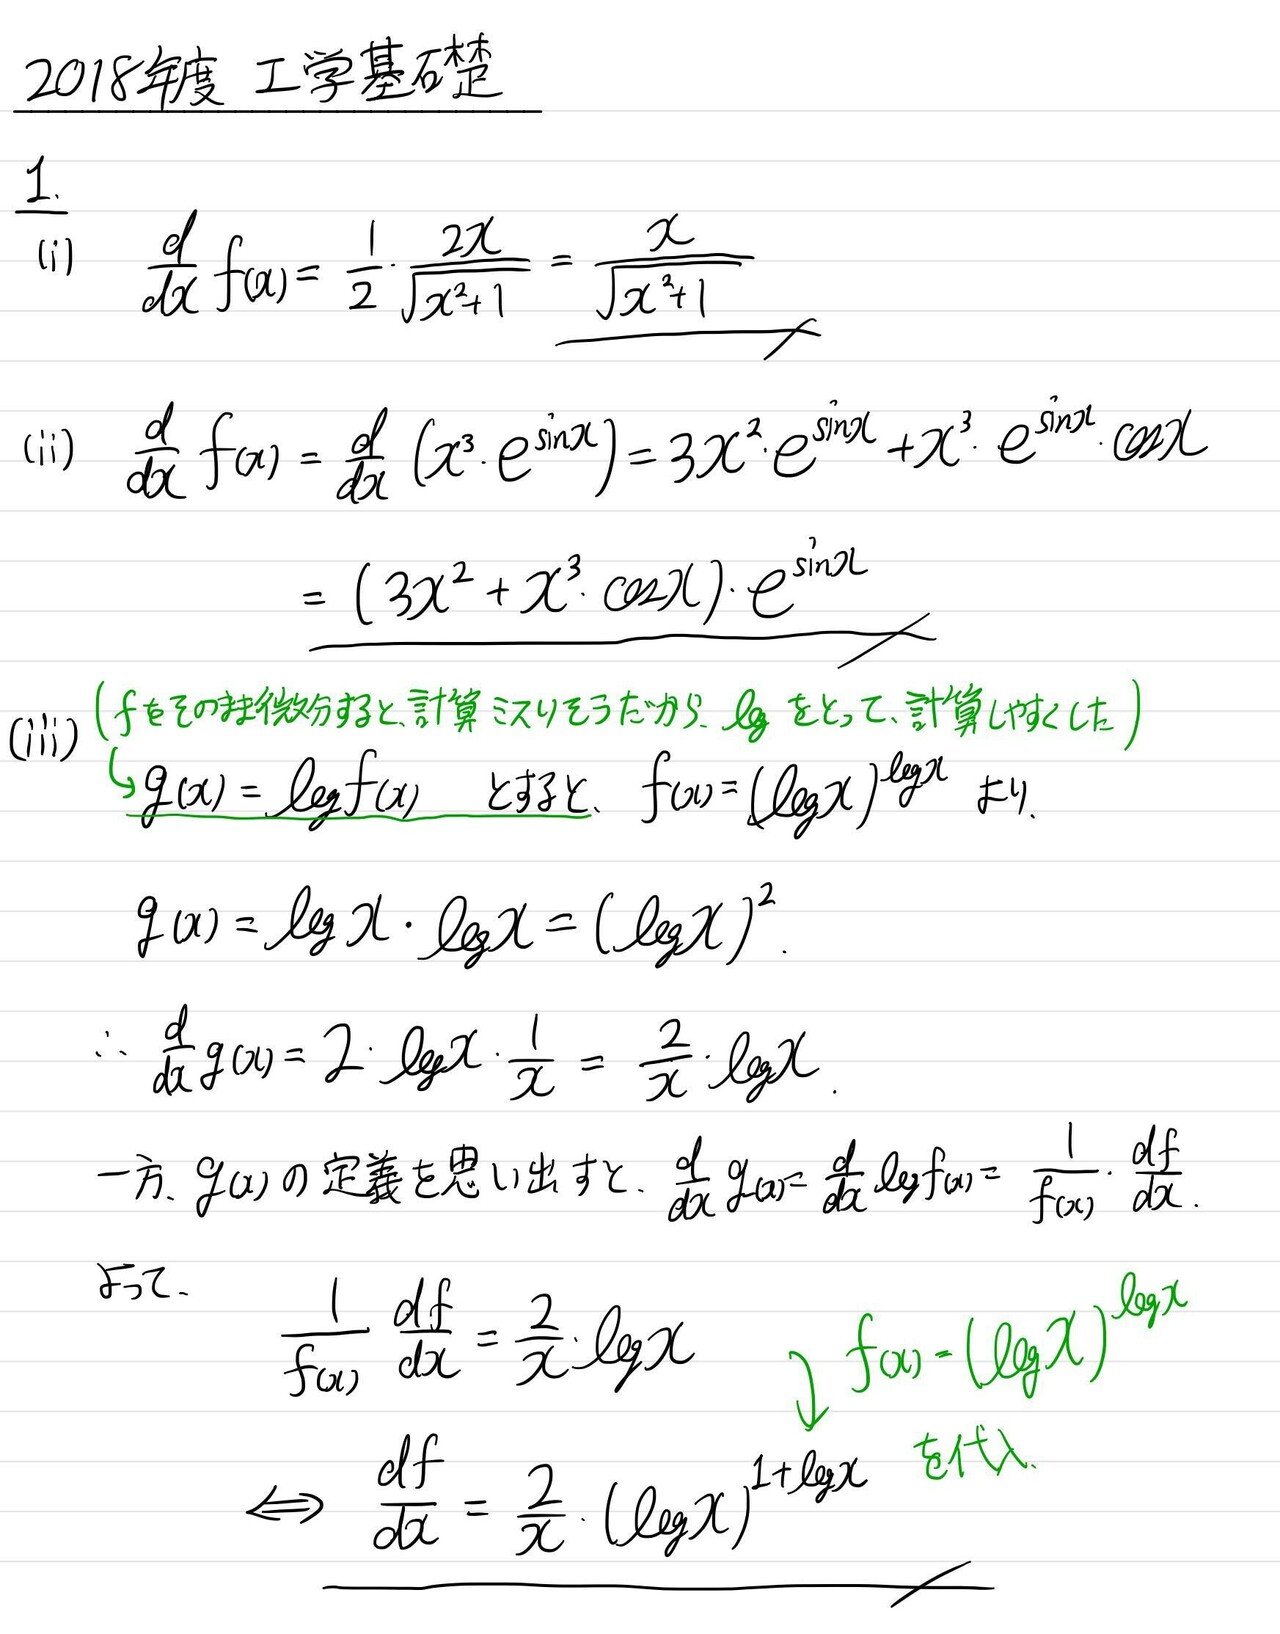 2018年度 工学基礎
1.
(i) d/dx f(x) = 1/2 · 2x/√(x²+1) = x/√(x²+1)
(ii) d/dx f(x) = d/dx (x³·e^{sinx}) = 3x²·e^{sinx} + x³·e^{sinx}·cosx
= (3x² + x³·cosx)·e^{sinx}
(fをそのまま微分すると、計算ミスりそうだから、logをとって、計算しやすくした)
(iii) g(x) = log f(x) とすると、f(x) = (logx)^{logx} より、
g(x) = logx · logx = (logx)².
∴ d/dx g(x) = 2·logx·1/x = 2/x·logx.
一方、g(x)の定義を思い出すと、d/dx g(x) = d/dx log f(x) = 1/f(x)·df/dx.
よって、
1/f(x) df/dx = 2/x·logx
f(x) = (logx)^{logx}
を代入
⇔ df/dx = 2/x·(logx)^{1+logx}